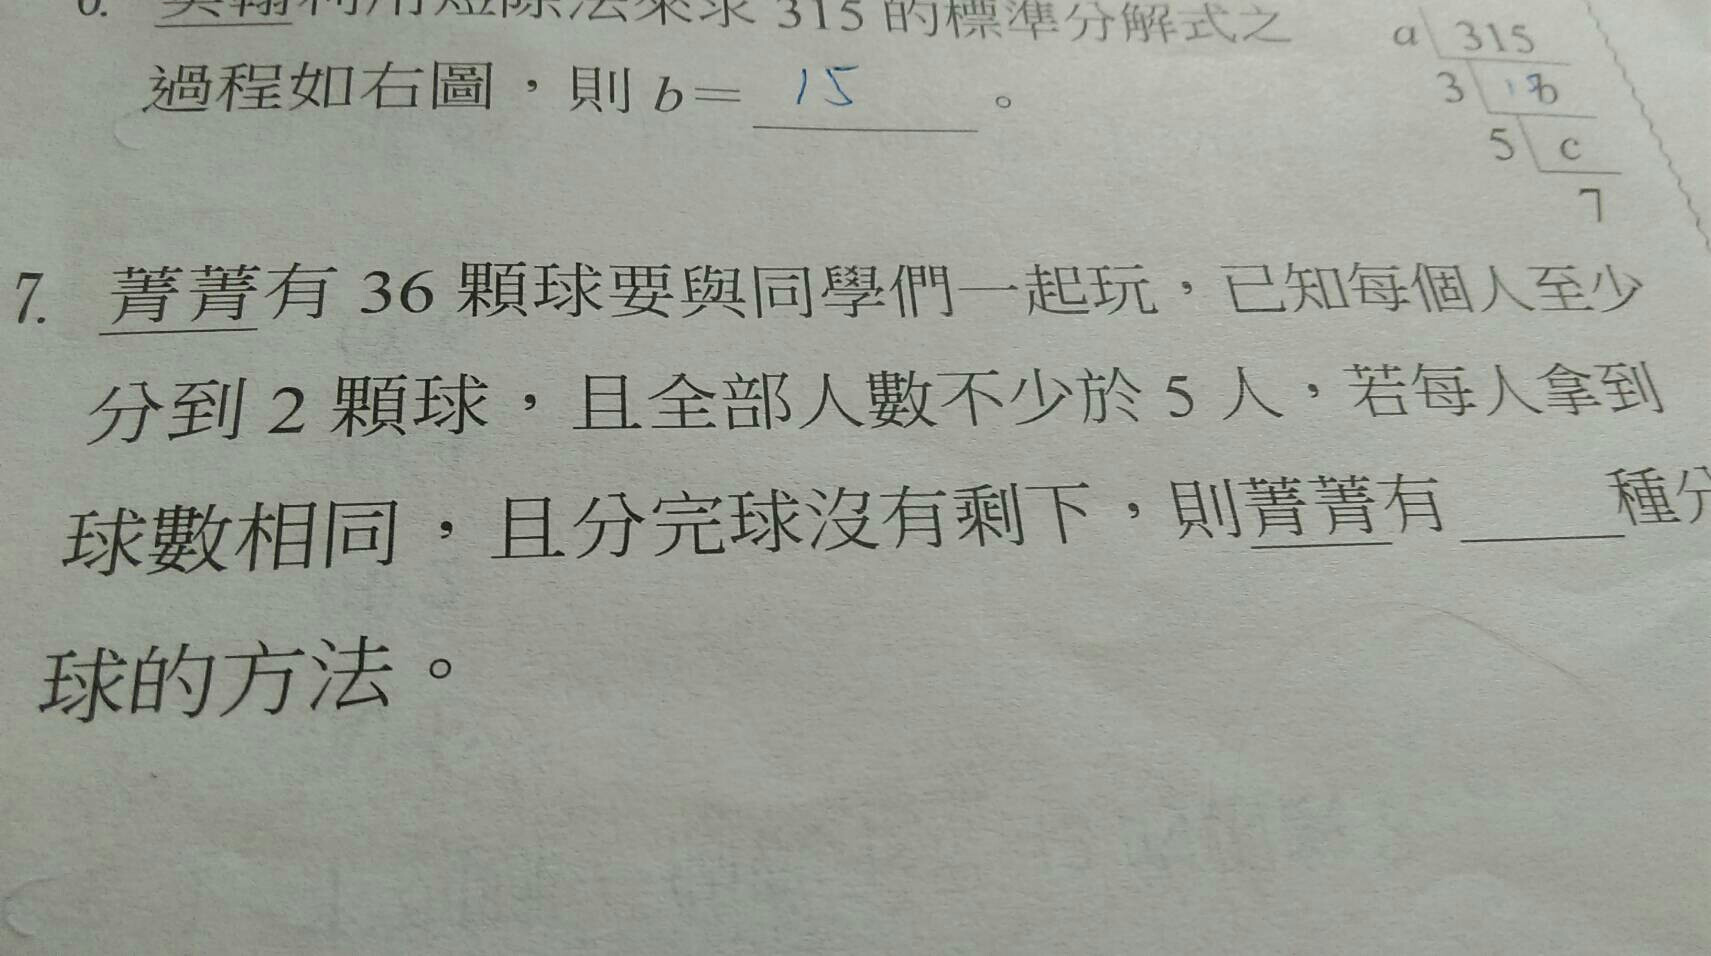 6. 翰利用短除法來求 315 的標準分解式之
過程如右圖，則 b= 15 。
a 315
3 b
5 c
7
7. 菁菁有 36 顆球要與同學們一起玩，已知每個人至少
分到 2 顆球，且全部人數不少於 5 人，若每人拿到
球數相同，且分完球沒有剩下，則菁菁有 ____ 種分
球的方法。